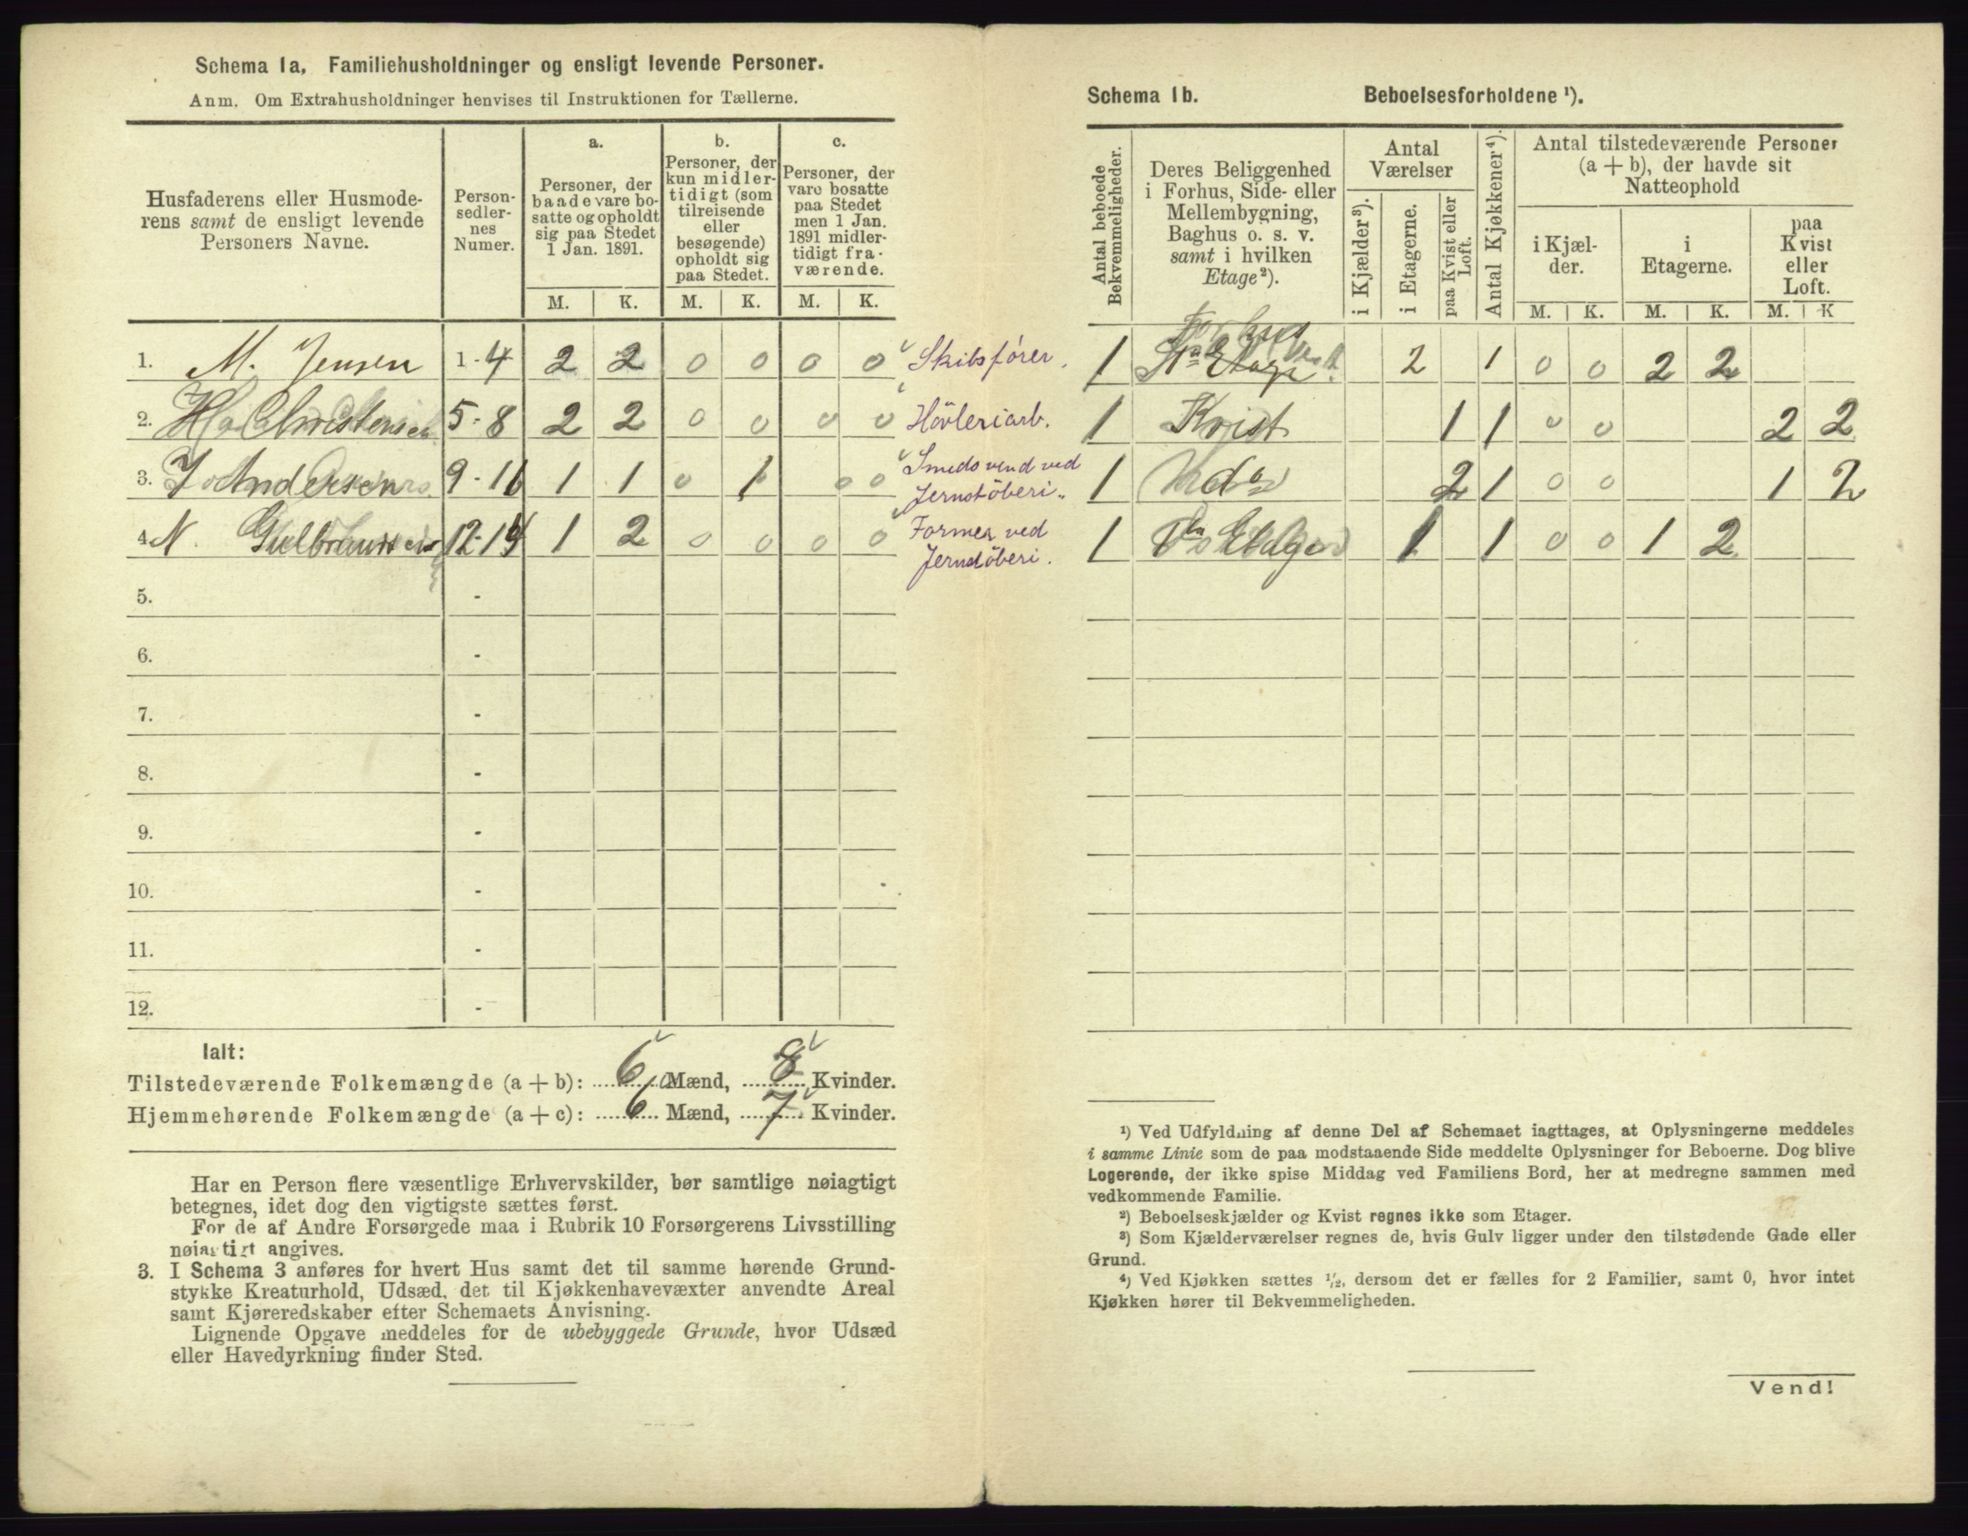 Schema 1a, Familiehusholdninger og ensligt levende Personer.
Anm. Om Extrahusholdninger henvises til Instruktionen for Tællerne.
Husfaderens eller Husmode-
rens samt de ensligt levende
Personers Navne.
Person-
sedler-
nes
Numer.
a.
Personer, der
baade vare bo-
satte og opholdt
sig paa Stedet
1 Jan. 1891.
b.
Personer, der
kun midler-
tidigt (som
tilreisende
eller
besøgende)
opholdt sig
paa Stedet.
c.
Personer, der
vare bosatte
paa Stedet
men 1 Jan.
1891 midler-
tidigt fra-
værende.
M. K. M. K. M. K.
1. M. Jensen 1-4 2 2 0 0 0 0 Skibsfører.
2. H. Christensen 5-8 2 2 0 0 0 0 Hövleriarb.
3. J. Andersen 9-11 1 1 0 1 0 0 Smedsvend ved
Jernstöberi.
4. N. Gulbrandsen 12-14 1 2 0 0 0 0 Former ved
Jernstöberi.
5. -
6. -
7. -
8. -
9. -
10. -
11. -
12. -
Ialt:
Tilstedeværende Folkemængde (a + b): 6 Mænd, 8 Kvinder.
Hjemmehørende Folkemængde (a + c): 6 Mænd, 7 Kvinder.
Har en Person flere væsentlige Erhvervskilder, bør samtlige nøiagtigt
betegnes, idet dog den vigtigste sættes først.
For de af Andre Forsørgede maa i Rubrik 10 Forsørgerens Livsstilling
nøiagtigt angives.
3. I Schema 3 anføres for hvert Hus samt det til samme hørende Grund-
stykke Kreaturhold, Udsæd, det til Kjøkkenhavevæxter anvendte Areal
samt Kjøreredskaber efter Schemaets Anvisning.
Lignende Opgave meddeles for de ubebyggede Grunde, hvor Udsæd
eller Havedyrkning finder Sted.
Schema 1b. Beboelsesforholdene ¹).
Antal beboede
Bekvemmeligheder.
Deres Beliggenhed
i Forhus, Side- eller
Mellembygning,
Baghus o. s. v.
samt i hvilken
Etage²).
Antal
Værelser
i Kjælder³).
i Etagerne.
paa Kvist eller
Loft.
Antal Kjøkkener⁴).
Antal tilstedeværende Personer
(a + b), der havde sit
Natteophold
i Kjæl-
der.
i
Etagerne.
paa
Kvist
eller
Loft.
M. K. M. K. M. K
1 Etage 2 1 0 0 2 2
1 Kvist 1 1 0 0 2 2
1 do 2 1 0 0 1 2
1 Etage 1 1 0 0 1 2
¹) Ved Udfyldning af denne Del af Schemaet iagttages, at Oplysningerne meddeles
i samme Linie som de paa modstaaende Side meddelte Oplysninger for Beboerne. Dog blive
Logerende, der ikke spise Middag ved Familiens Bord, her at medregne sammen med
vedkommende Familie.
²) Beboelseskjælder og Kvist regnes ikke som Etager.
³) Som Kjælderværelser regnes de, hvis Gulv ligger under den tilstødende Gade eller
Grund.
⁴) Ved Kjøkken sættes ½, dersom det er fælles for 2 Familier, samt 0, hvor intet
Kjøkken hører til Bekvemmeligheden.
Vend!